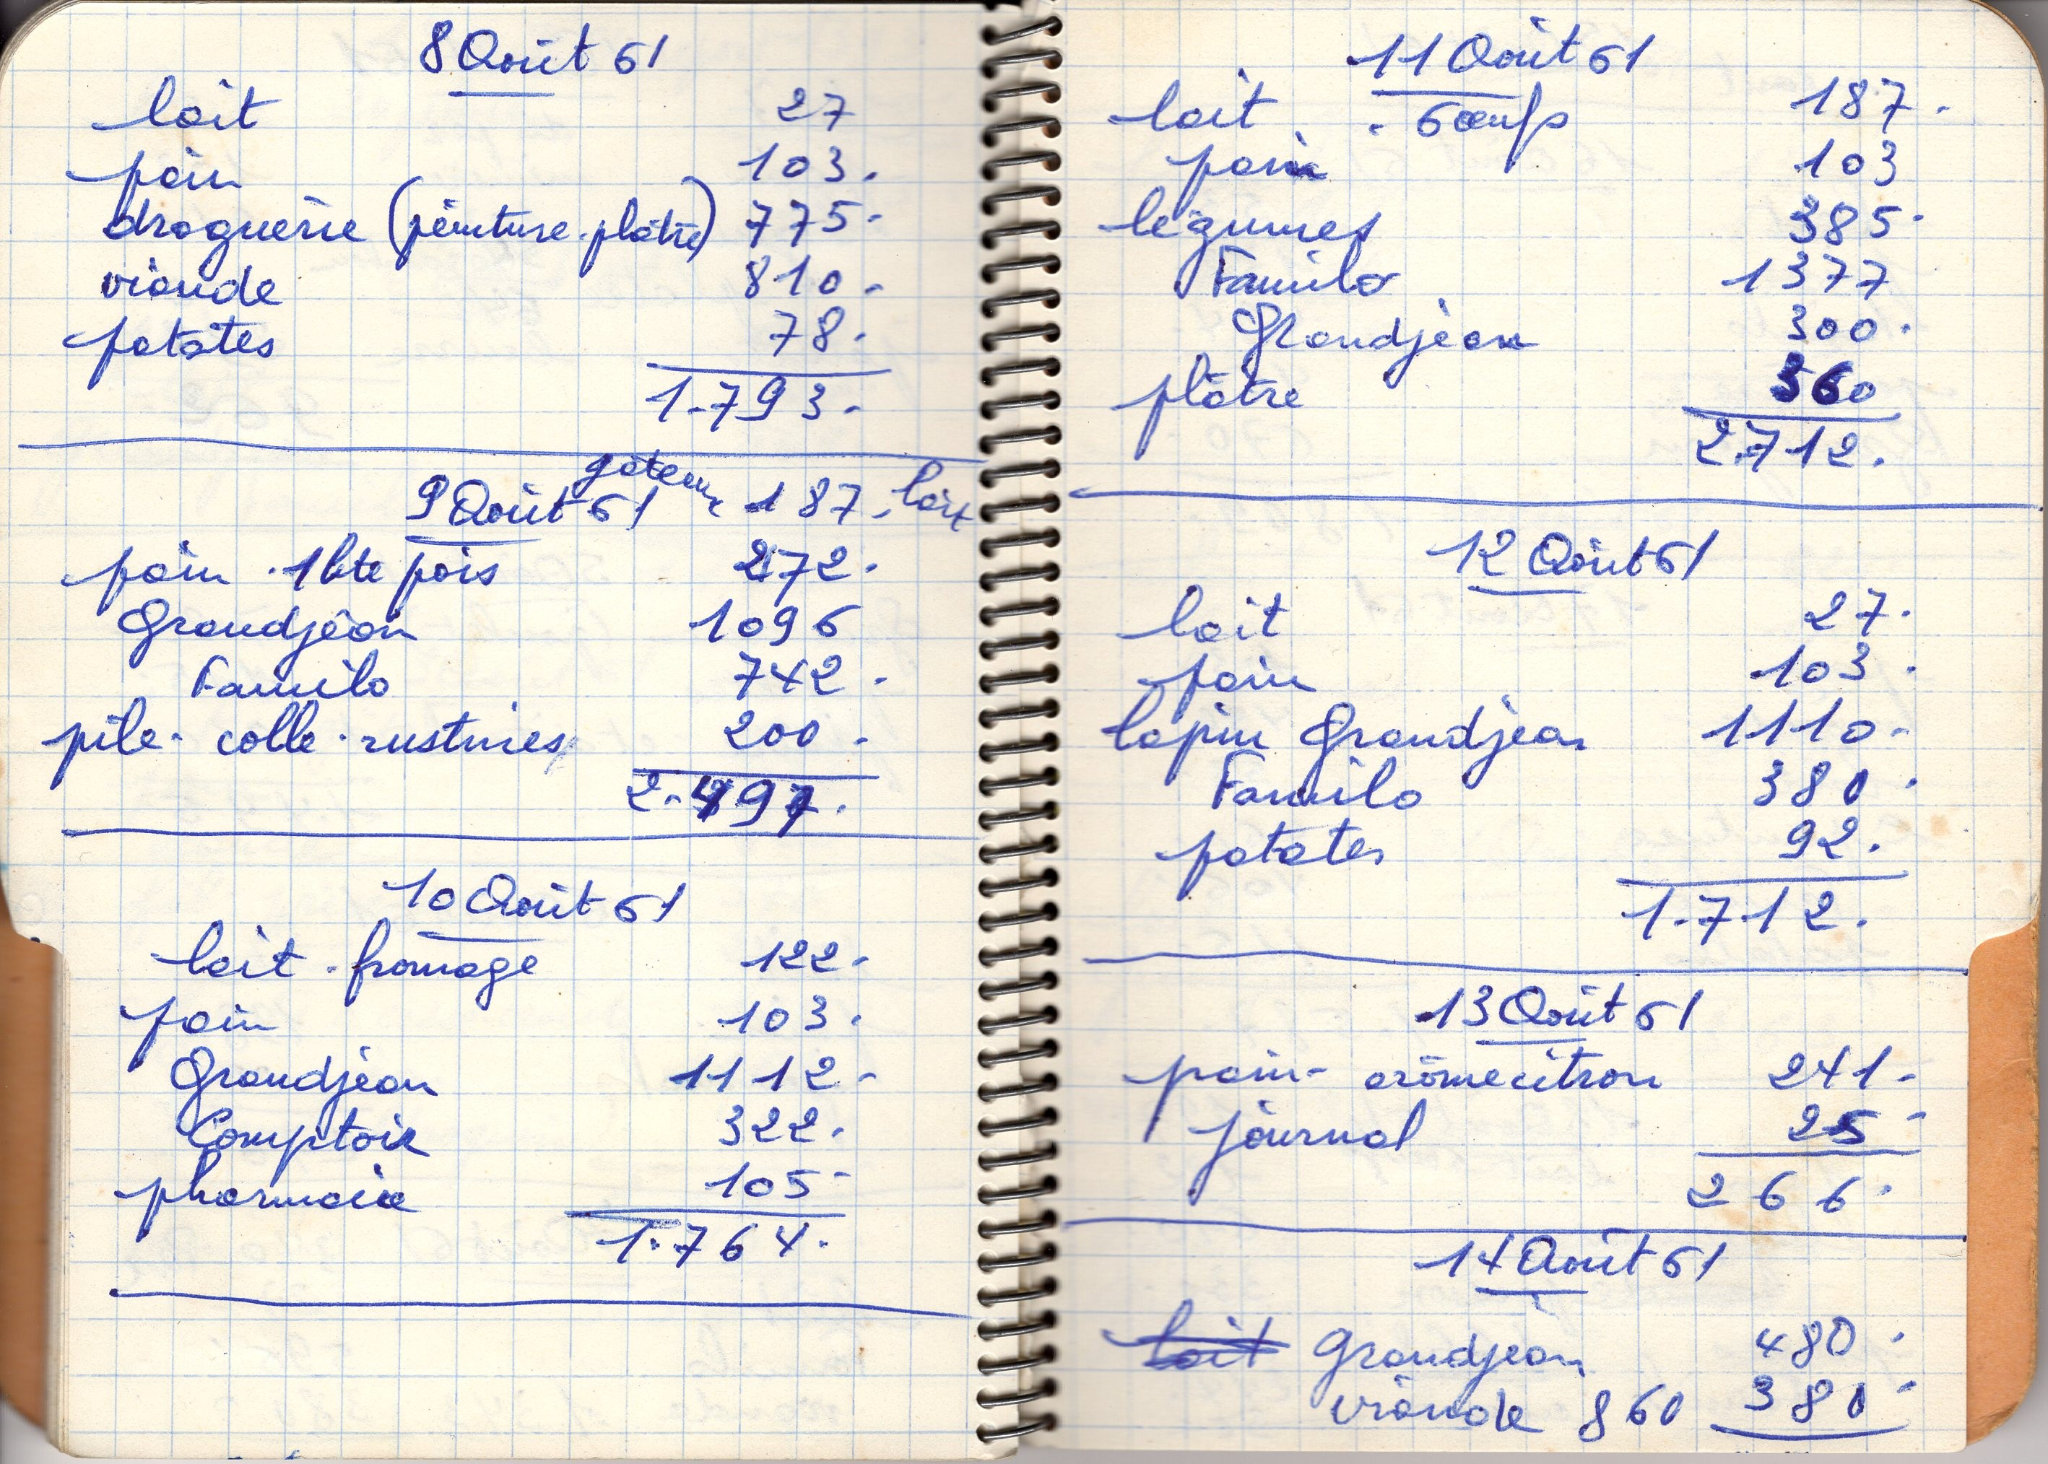 8 Août 61
lait 27
pain 103.
droguerie (peinture.plâtre) 775.
viande 810.
patates 78.
1.793.
9 Août 61 gâteau 187. lait
pain . 1 bte pois 272.
Grandjean 1096
Familo 742.
pile. colle. rustines 200.
2.497.
10 Août 61
lait . fromage 122.
pain 103.
Grandjean 1112.
Comptoir 322.
pharmacie 105.
1.764.
11 Août 61
lait . 6 œufs 187.
pain 103
légumes 385.
Familo 1377
Grandjean 300.
plâtre 360
2.712.
12 Août 61
lait 27.
pain 103.
lapin Grandjean 1110.
Familo 380.
patates 92.
1.712.
13 Août 61
pain - arôme citron 241.
journal 25
266.
14 Août 61
lait Grandjean 480.
viande 860 380.